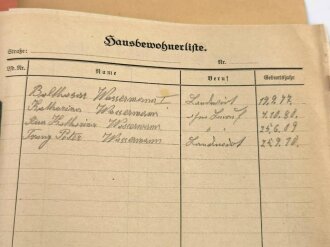 Hausbewohnerliste.
Straße: Nr.
Lfd. Nr. Name Beruf Geburtsjahr
Balthasar Wassermann I Landwirt 19.9.77.
Katharina Wassermann ohne Beruf 7.10.80.
Katharina Wassermann " 25.6.09
Peter Wassermann Landwirt 25.9.10.